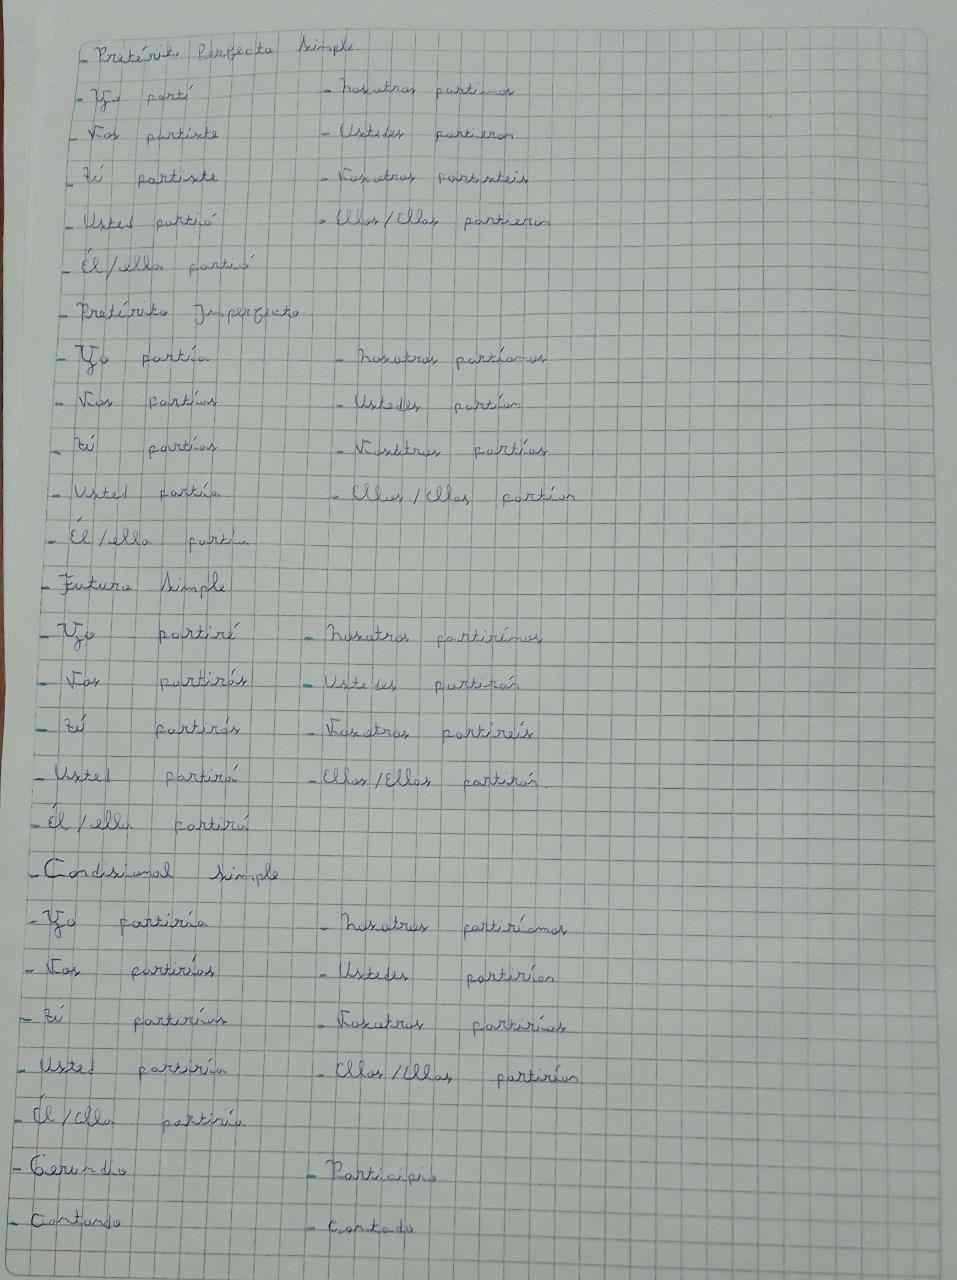 - Pretérito Perfecto Simple
- Yo partí - Nosotros partimos
- Vos partiste - Ustedes partieron
- Tú partiste - Vosotros partisteis
- Usted partió - Ellos/Ellas partieron
- Él/ella partió
- Pretérito Imperfecto
- Yo partía - Nosotros partíamos
- Vos partías - Ustedes partían
- Tú partías - Vosotros partías
- Usted partía - Ellos/Ellas partían
- Él/ella partía
- Futuro Simple
- Yo partiré - Nosotros partirémos
- Vos partirás - Ustedes partirán
- Tú partirás - Vosotros partiréis
- Usted partirá - Ellos/Ellas partirán
- Él/ella partirá
- Condisional Simple
- Yo partiría - Nosotros partiríamos
- Vos partirías - Ustedes partirían
- Tú partirías - Vosotros partirías
- Usted partiría - Ellos/Ellas partirían
- Él/ella partiría
- Gerundio - Participio
- Contando - Contado